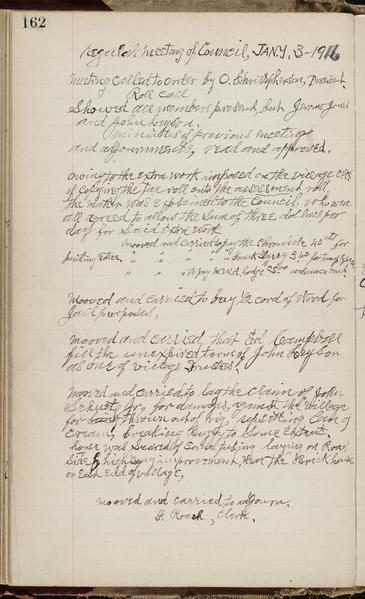 162
Regular Meeting of Council, JANY, 3-1916
Meeting called to order by O. Christopherson, President.
Roll call
Showed all members present, but Jerome Jones
and John Leyson.
Minutes of previous meeting
and adjournments, read and approved.
Owing to the extra work imposed on the village Clerk
of copying the tax roll onto the assessment roll
the matter was explained to the Council, who were
all agreed to allow the sum of three dollars per
day for Said Extra Work
Mooved and carried to pay the Chronicle 40 for
printing
" " to pay M.W.A. Lodge 25 00 rent
Mooved and carried to buy cord of Wood for
Jail purposes,
Mooved and carried, that Ed Campbell
fill the unexpired term of John Leyson
as one of village Trustees,
Mooved and carried to lay the Claim of John
Jr, for damages, against the Village
for thrown out of rig, upsetting Can of
Cream, breaking Buggy to some Extent,
horse was Scared of Some piping laying on Road
side by highway improvement, Near the Brick house
on East End of village,
Mooved and carried to adjourn.
H. Roach, Clerk,